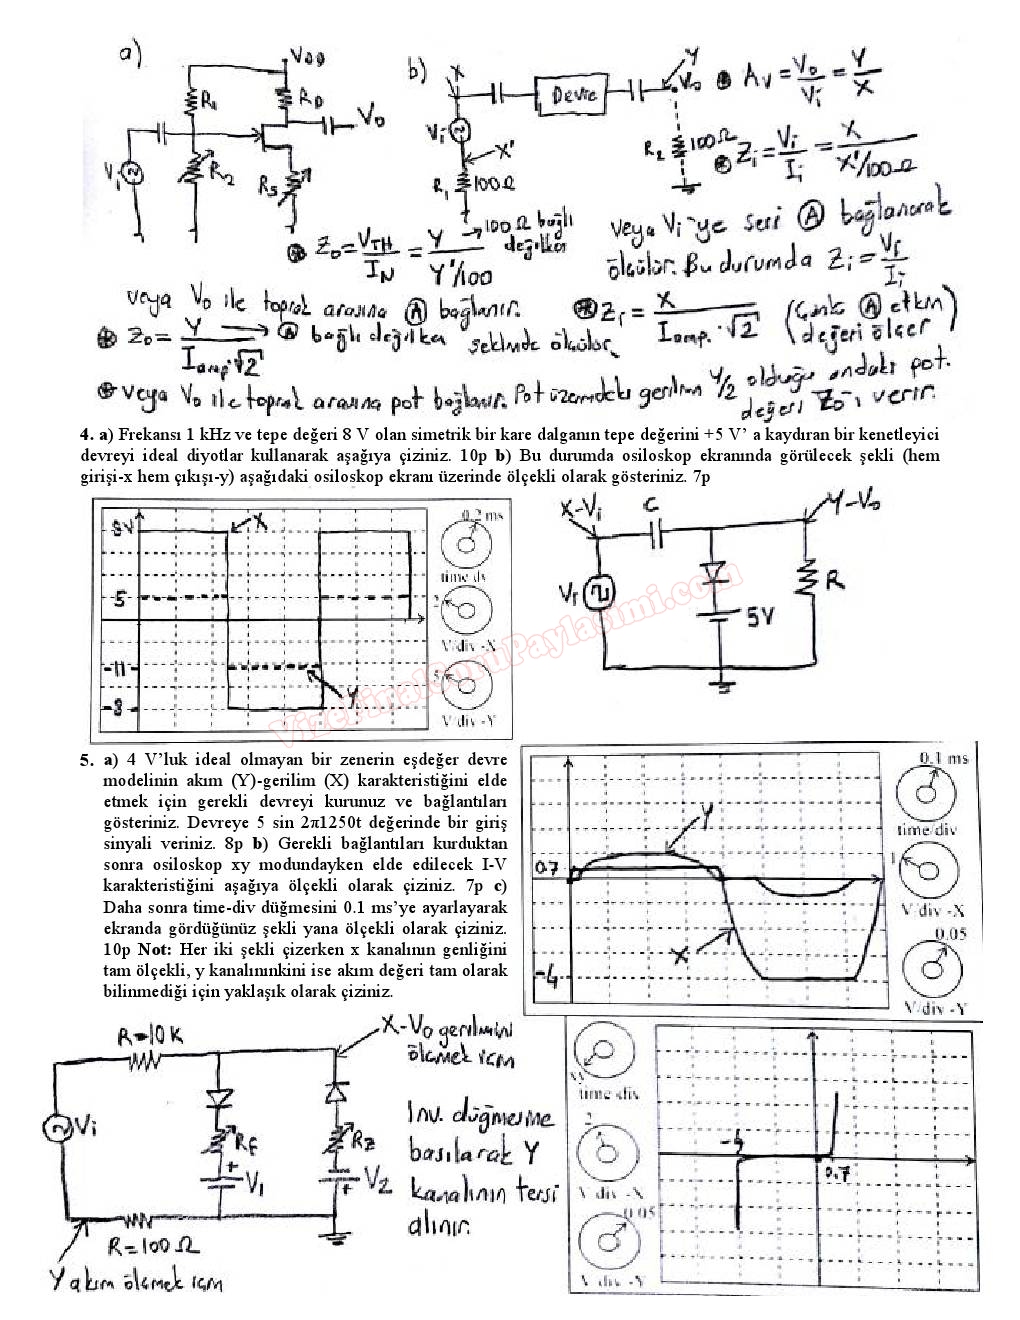 a)
VDD
R1
RD
Vo
Vi
R2
RS
b)
X
Devre
Y
Vo
Vi
X'
R1 100Ω
R2 100Ω
⊛ Av = Vo/Vi = Y/X
⊛ Zi = Vi/Ii = X/(X'/100Ω)
⊛ Zo = VTH/IN = Y/(Y'/100) → 100Ω bağlı değilken
veya Vi'ye seri Ⓐ bağlanarak
ölçülür. Bu durumda Zi = Vi/Ii
veya Vo ile toprak arasına Ⓐ bağlanır.
⊛ Zi = X/(Iamp.√2) (Çünkü Ⓐ etkin değeri ölçer)
⊛ Zo = Y/(Iamp.√2) → Ⓐ bağlı değilken şeklinde ölçülür.
⊛ veya Vo ile toprak arasına pot bağlanır. Pot üzerindeki gerilimin Y/2 olduğu andaki pot.
değeri Zo'ı verir.
4. a) Frekansı 1 kHz ve tepe değeri 8 V olan simetrik bir kare dalganın tepe değerini +5 V' a kaydıran bir kenetleyici
devreyi ideal diyotlar kullanarak aşağıya çiziniz. 10p b) Bu durumda osiloskop ekranında görülecek şekli (hem
girişi-x hem çıkışı-y) aşağıdaki osiloskop ekranı üzerinde ölçekli olarak gösteriniz. 7p
8V
X
5
-11
Y
-8
0.2 ms
time/dv
2
V/div -X
5
V/div -Y
X-Vi
C
Y-Vo
Vi
5V
R
VizeFinalSoruPaylasimi.com
5. a) 4 V'luk ideal olmayan bir zenerin eşdeğer devre
modelinin akım (Y)-gerilim (X) karakteristiğini elde
etmek için gerekli devreyi kurunuz ve bağlantıları
gösteriniz. Devreye 5 sin 2π1250t değerinde bir giriş
sinyali veriniz. 8p b) Gerekli bağlantıları kurduktan
sonra osiloskop xy modundayken elde edilecek I-V
karakteristiğini aşağıya ölçekli olarak çiziniz. 7p c)
Daha sonra time-div düğmesini 0.1 ms'ye ayarlayarak
ekranda gördüğünüz şekli yana ölçekli olarak çiziniz.
10p Not: Her iki şekli çizerken x kanalının genliğini
tam ölçekli, y kanalınınkini ise akım değeri tam olarak
bilinmediği için yaklaşık olarak çiziniz.
Y
0.7
X
-4
0.1 ms
time/div
1
V/div -X
0.05
V/div -Y
R=10K
Vi
RF
V1
RZ
V2
R=100Ω
Y akım ölçmek için
X-Vo gerilimini
ölçmek için
Inv. düğmesine
basılarak Y
kanalının tersi
alınır.
xy
time/div
2
V/div -X
0.05
V/div -Y
-4
0.7